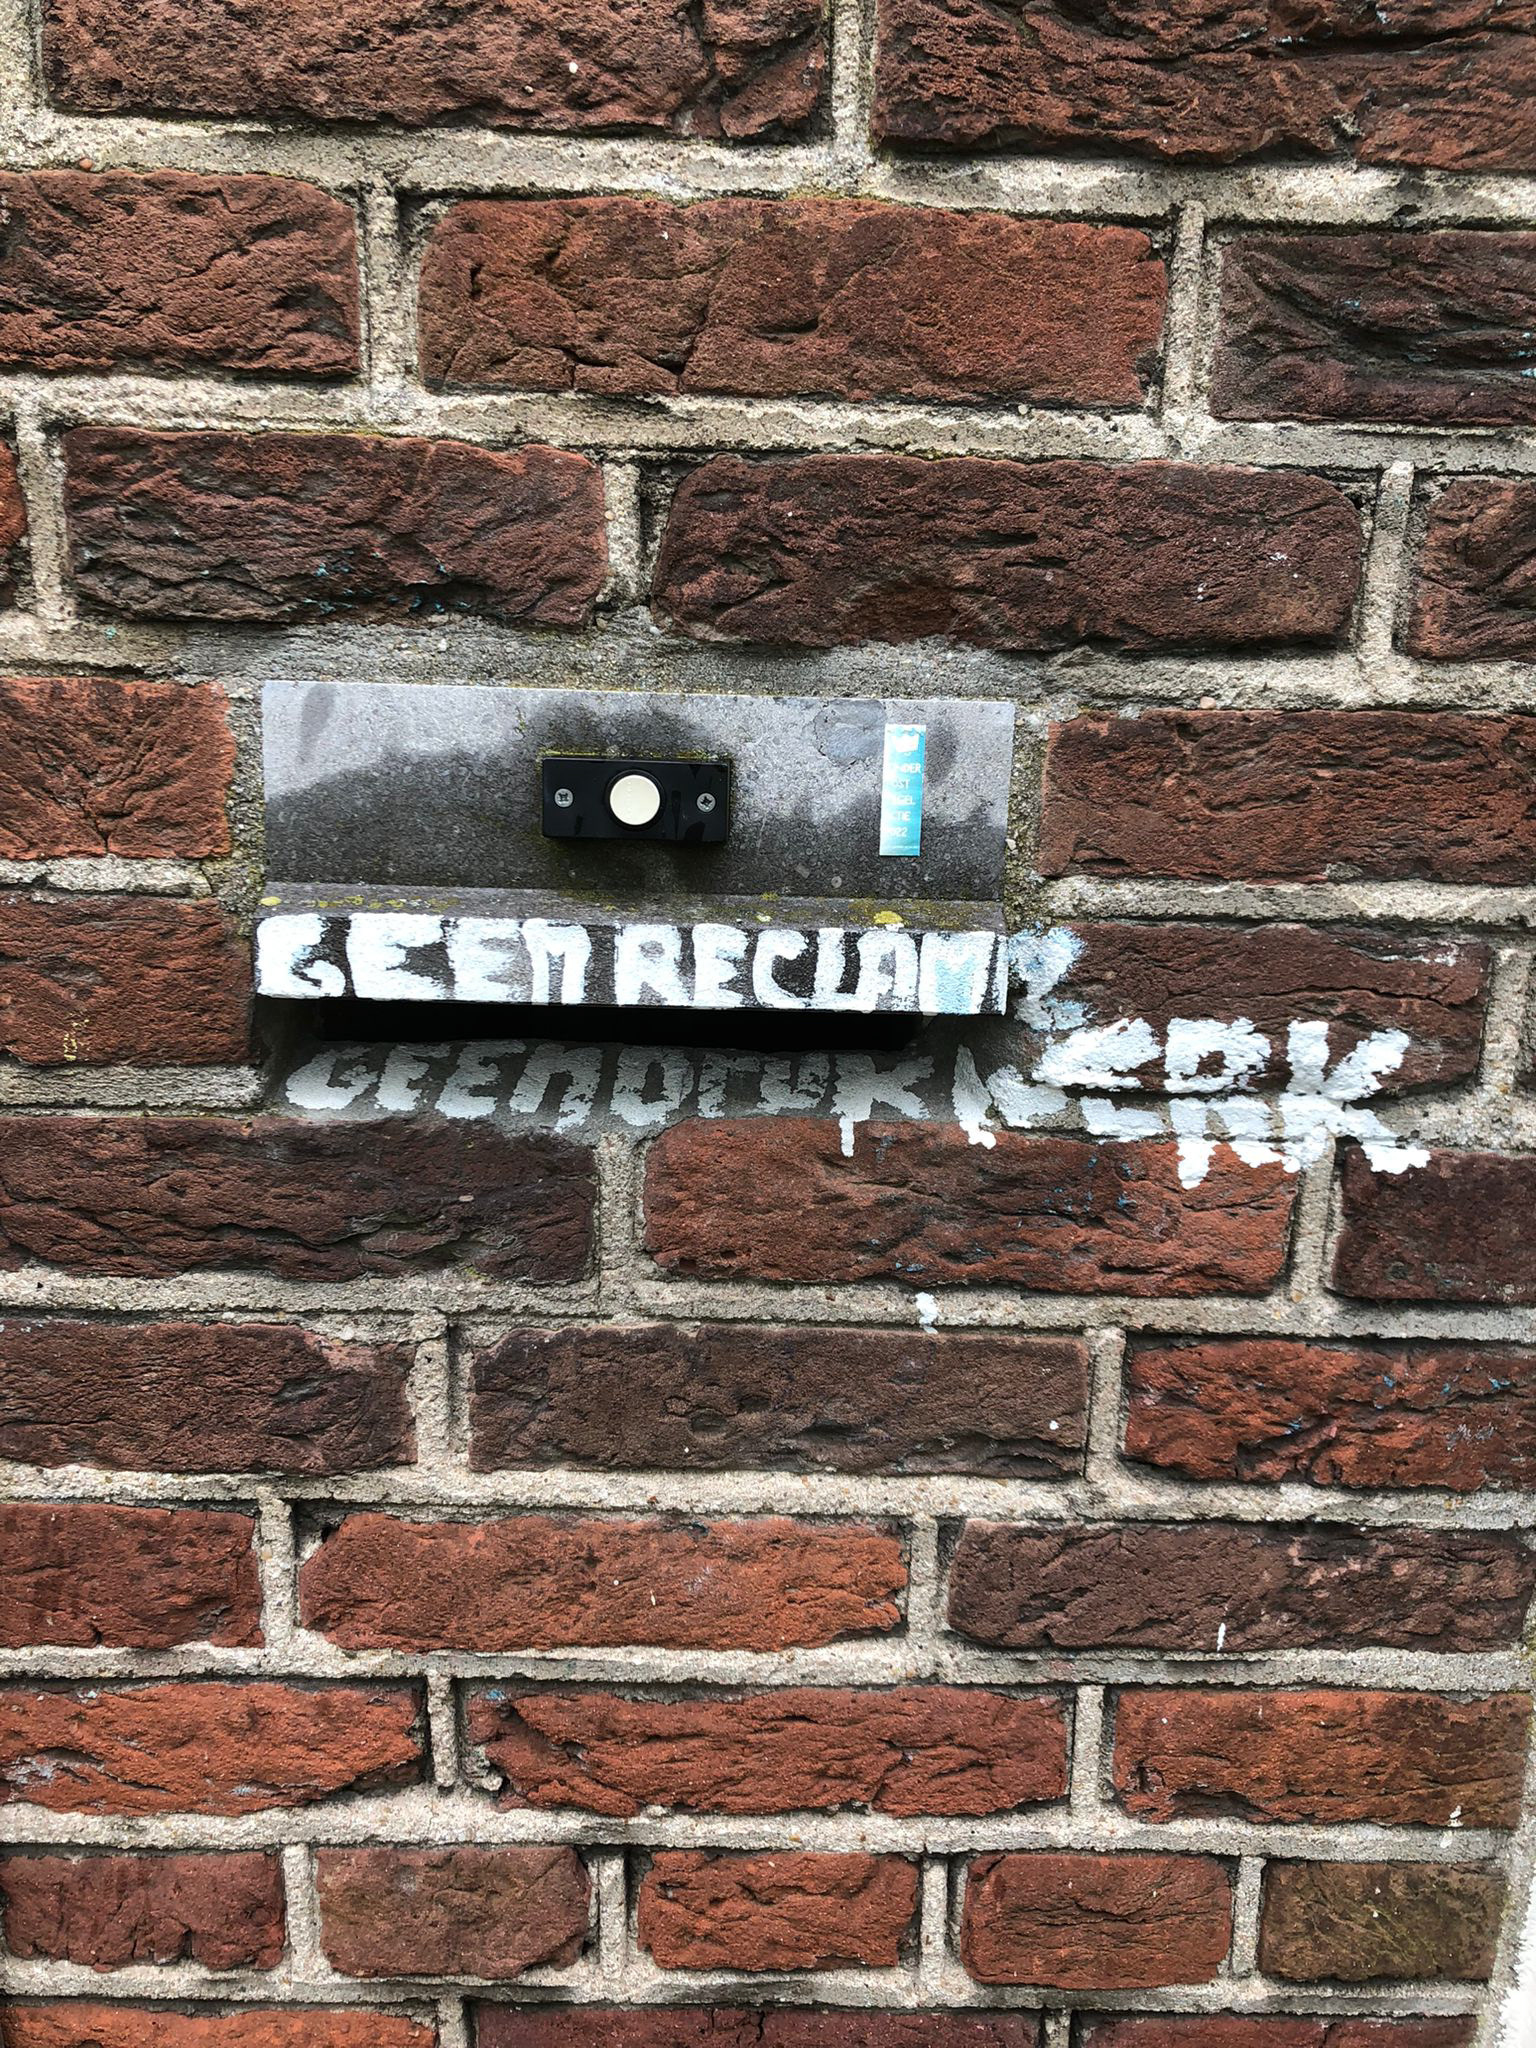 NDER
ST
GEL
CTIE
022
GEEN RECLAME
GEEN DRUKWERK